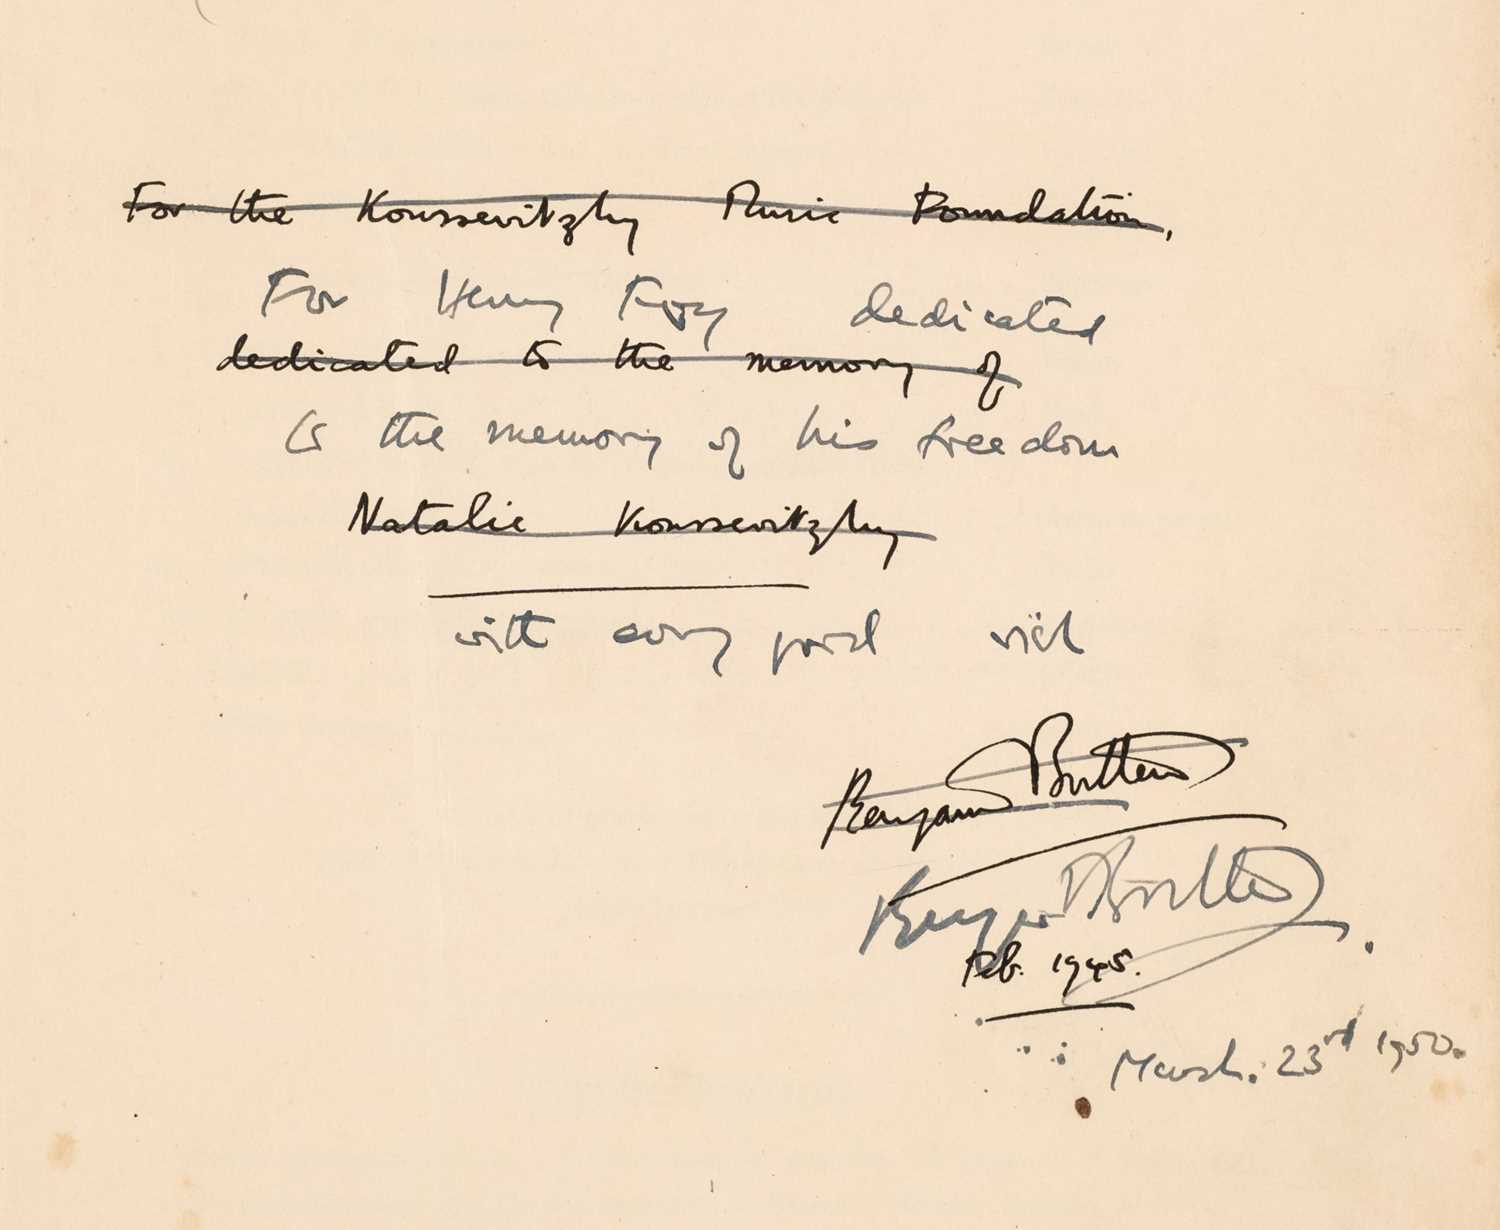 For the Koussevitzky Music Foundation,
For Henry dedicated
dedicated to the memory of
to the memory of his freedom
Natalie Koussevitzky
with every good wish
Benjamin Britten
Benjamin Britten
Feb. 1945.
March. 23rd 1950.